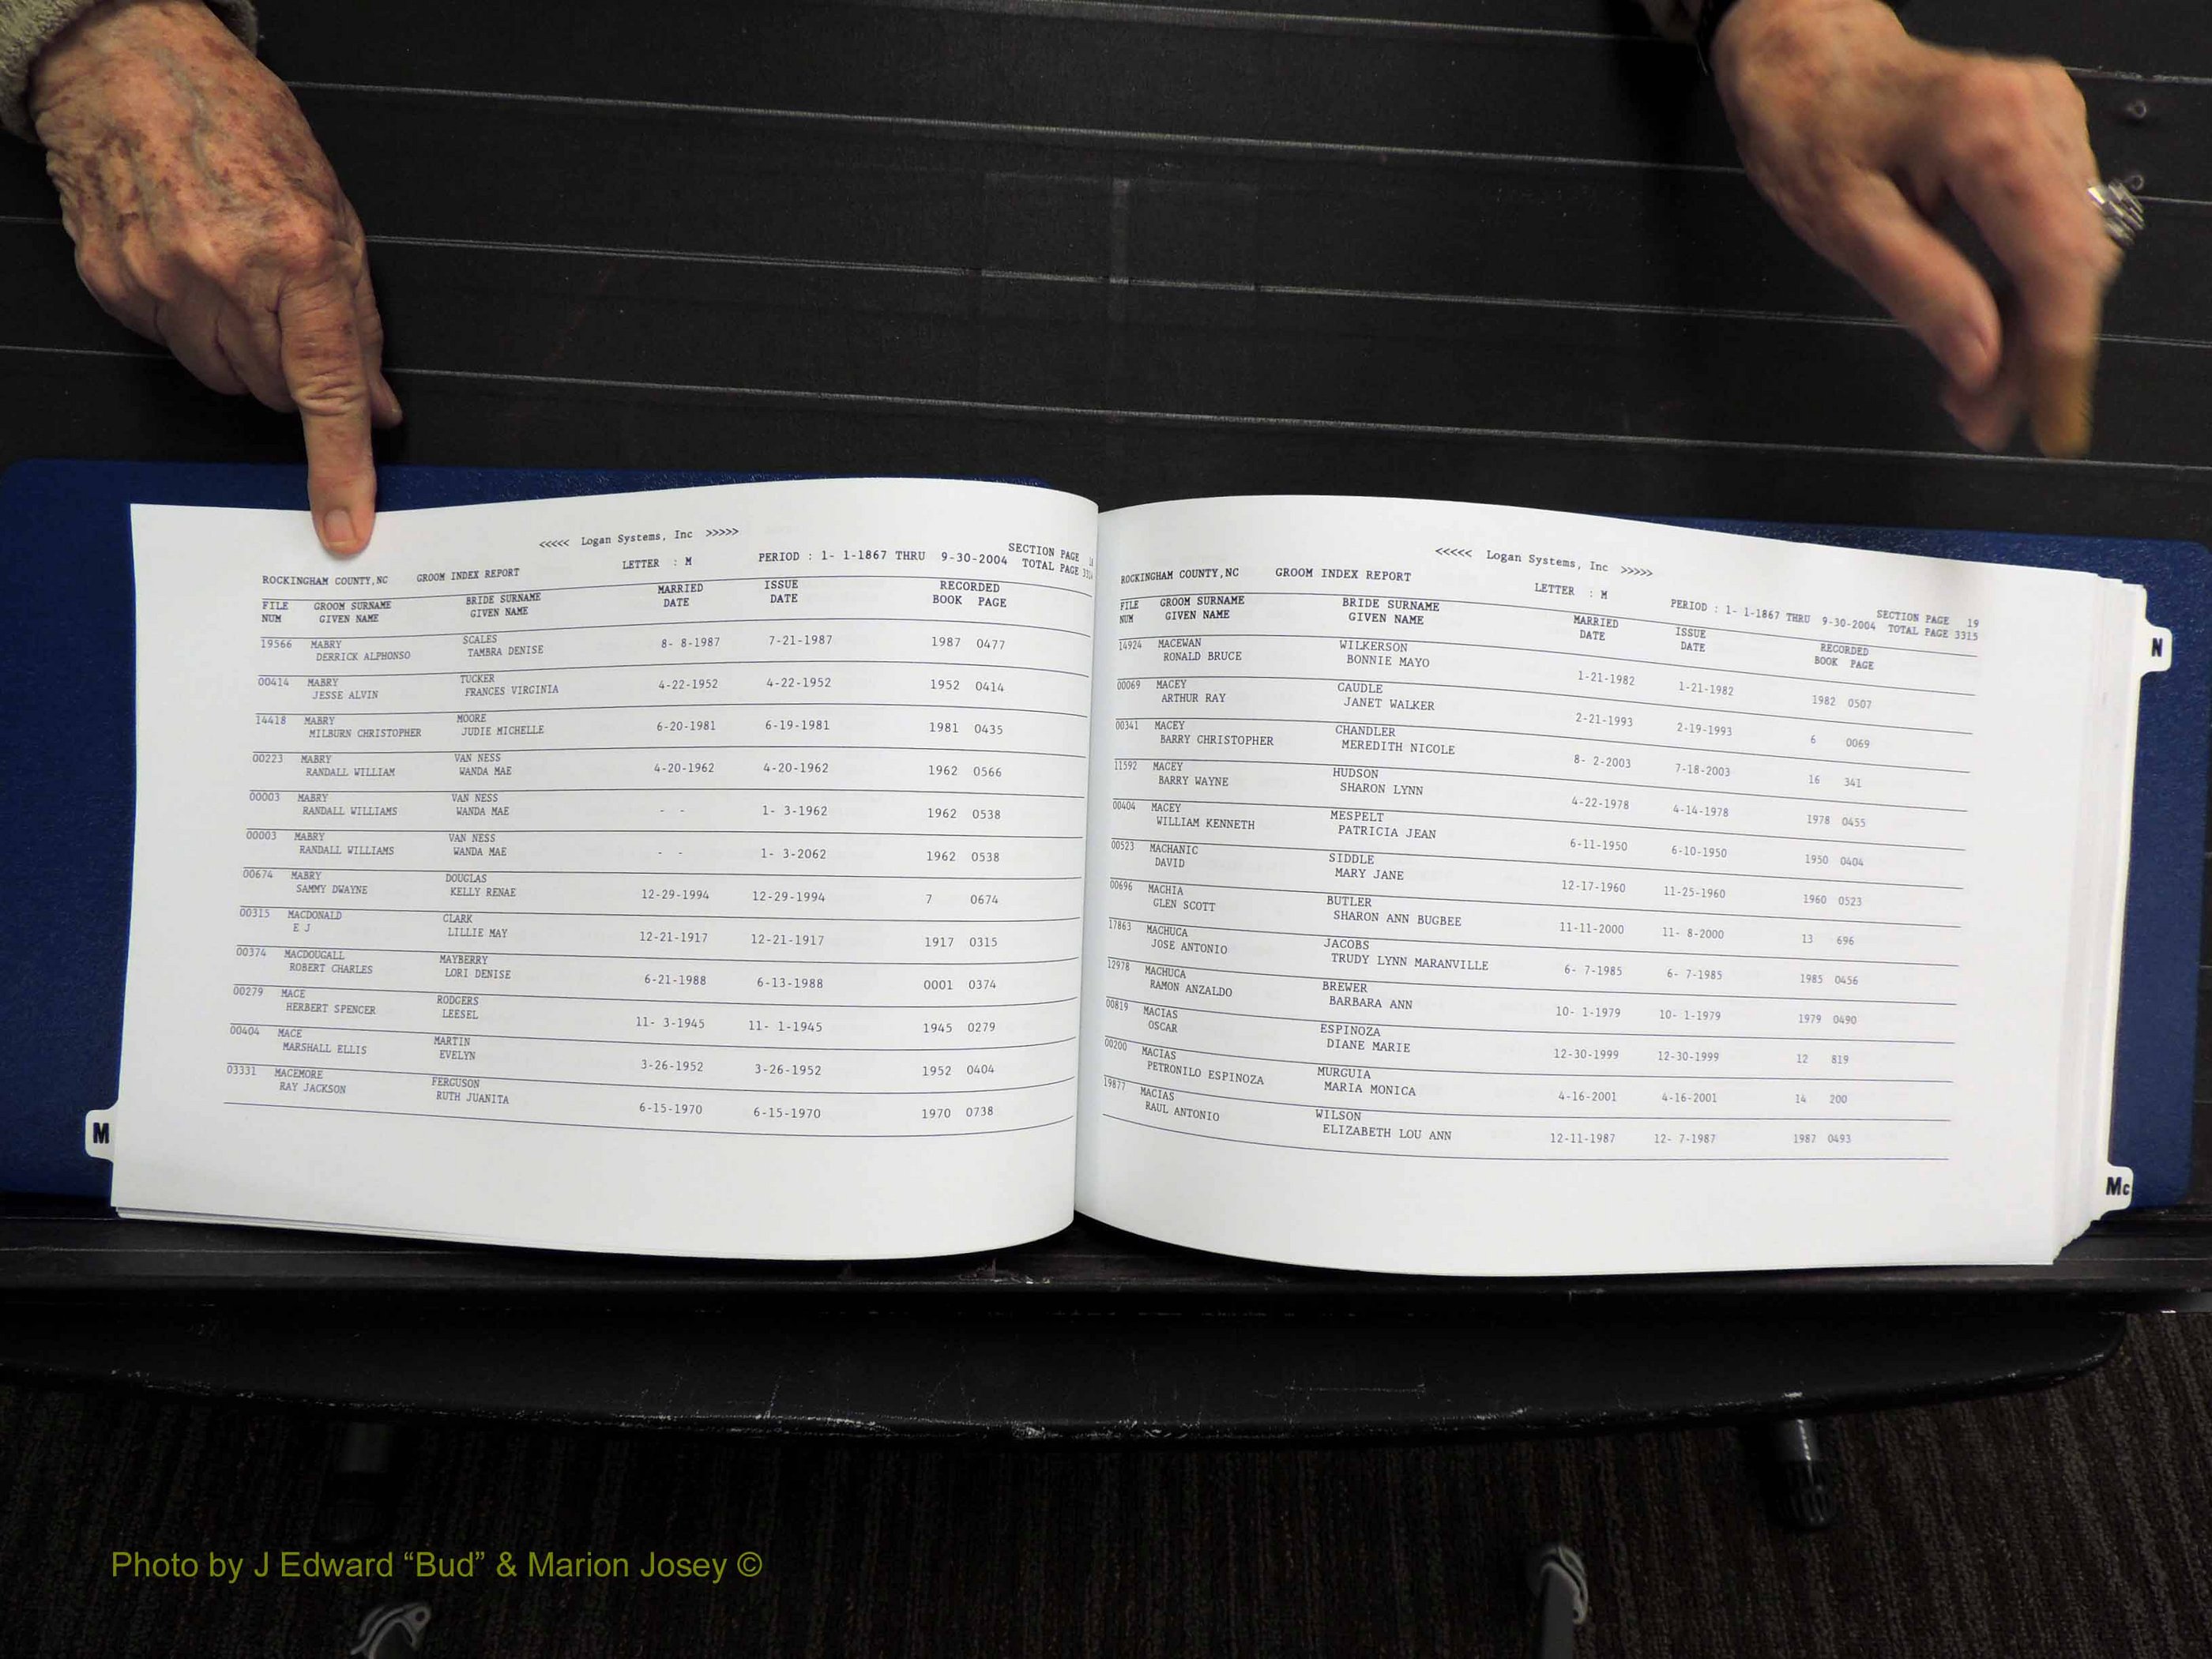 <<<<< Logan Systems, Inc >>>>>
SECTION PAGE
ROCKINGHAM COUNTY,NC GROOM INDEX REPORT LETTER : M PERIOD : 1- 1-1867 THRU 9-30-2004 TOTAL PAGE
FILE GROOM SURNAME BRIDE SURNAME MARRIED ISSUE RECORDED
NUM GIVEN NAME GIVEN NAME DATE DATE BOOK PAGE
19566 MABRY SCALES 8- 8-1987 7-21-1987 1987 0477
DERRICK ALPHONSO TAMBRA DENISE
00414 MABRY TUCKER 4-22-1952 4-22-1952 1952 0414
JESSE ALVIN FRANCES VIRGINIA
14418 MABRY MOORE 6-20-1981 6-19-1981 1981 0435
MILBURN CHRISTOPHER JUDIE MICHELLE
00223 MABRY VAN NESS 4-20-1962 4-20-1962 1962 0566
RANDALL WILLIAM WANDA MAE
00003 MABRY VAN NESS - - 1- 3-1962 1962 0538
RANDALL WILLIAMS WANDA MAE
00003 MABRY VAN NESS - - 1- 3-2062 1962 0538
RANDALL WILLIAMS WANDA MAE
00674 MABRY DOUGLAS 12-29-1994 12-29-1994 7 0674
SAMMY DWAYNE KELLY RENAE
00315 MACDONALD CLARK 12-21-1917 12-21-1917 1917 0315
E J LILLIE MAY
00374 MACDOUGALL MAYBERRY 6-21-1988 6-13-1988 0001 0374
ROBERT CHARLES LORI DENISE
00279 MACE RODGERS 11- 3-1945 11- 1-1945 1945 0279
HERBERT SPENCER LEESEL
00404 MACE MARTIN 3-26-1952 3-26-1952 1952 0404
MARSHALL ELLIS EVELYN
03331 MACEMORE FERGUSON 6-15-1970 6-15-1970 1970 0738
RAY JACKSON RUTH JUANITA
M
<<<<< Logan Systems, Inc >>>>>
SECTION PAGE 19
ROCKINGHAM COUNTY,NC GROOM INDEX REPORT LETTER : M PERIOD : 1- 1-1867 THRU 9-30-2004 TOTAL PAGE 3315
FILE GROOM SURNAME BRIDE SURNAME MARRIED ISSUE RECORDED
NUM GIVEN NAME GIVEN NAME DATE DATE BOOK PAGE
14924 MACEWAN WILKERSON 1-21-1982 1-21-1982 1982 0507
RONALD BRUCE BONNIE MAYO
00069 MACEY CAUDLE 2-21-1993 2-19-1993 6 0069
ARTHUR RAY JANET WALKER
00341 MACEY CHANDLER 8- 2-2003 7-18-2003 16 341
BARRY CHRISTOPHER MEREDITH NICOLE
11592 MACEY HUDSON 4-22-1978 4-14-1978 1978 0455
BARRY WAYNE SHARON LYNN
00404 MACEY MESPELT 6-11-1950 6-10-1950 1950 0404
WILLIAM KENNETH PATRICIA JEAN
00523 MACHANIC SIDDLE 12-17-1960 11-25-1960 1960 0523
DAVID MARY JANE
00696 MACHIA BUTLER 11-11-2000 11- 8-2000 13 696
GLEN SCOTT SHARON ANN BUGBEE
17863 MACHUCA JACOBS 6- 7-1985 6- 7-1985 1985 0456
JOSE ANTONIO TRUDY LYNN MARANVILLE
12978 MACHUCA BREWER 10- 1-1979 10- 1-1979 1979 0490
RAMON ANZALDO BARBARA ANN
00819 MACIAS ESPINOZA 12-30-1999 12-30-1999 12 819
OSCAR DIANE MARIE
00200 MACIAS MURGUIA 4-16-2001 4-16-2001 14 200
PETRONILO ESPINOZA MARIA MONICA
19877 MACIAS WILSON 12-11-1987 12- 7-1987 1987 0493
RAUL ANTONIO ELIZABETH LOU ANN
N
Mc
Photo by J Edward “Bud” & Marion Josey ©